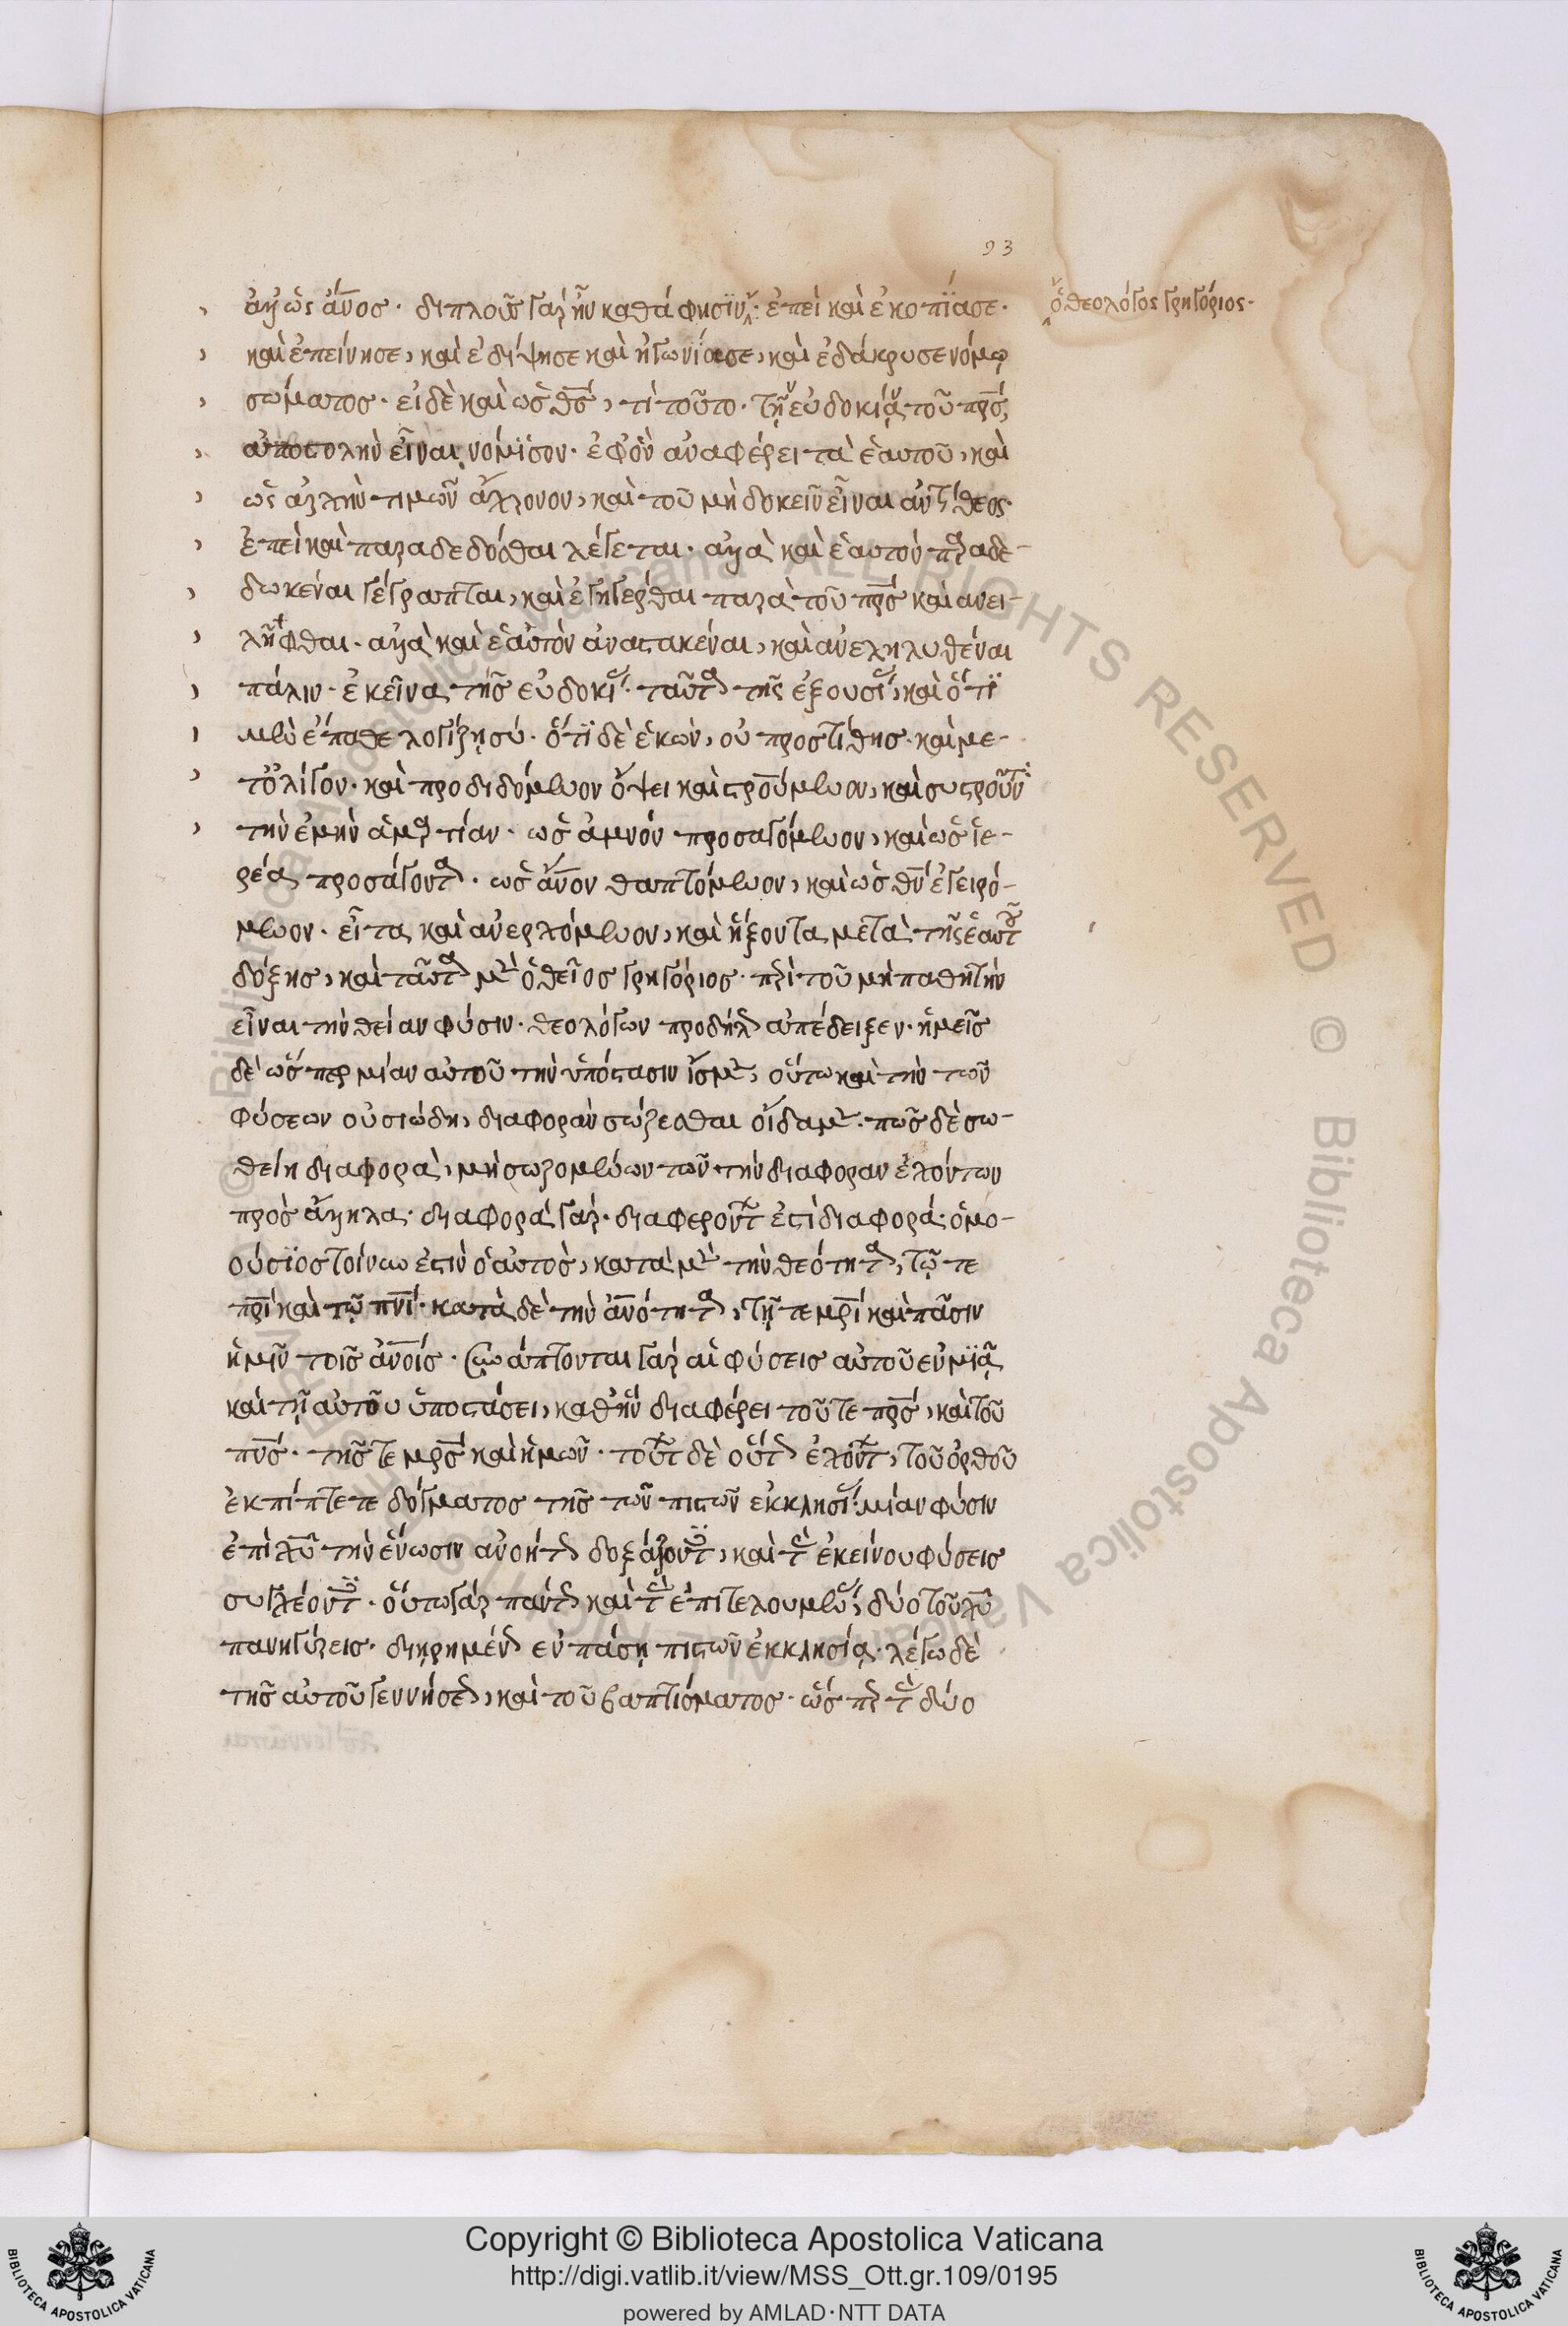 93
ἀλλ' ὡς ἄνος· διπλοῦς γὰρ ἦν καθά φησϊν· ἐπεὶ καὶ ἐκοπίασε· ὁ θεολόγος Γρηγόριος·
καὶ ἐπείνησε, καὶ ἐδίψησε καὶ ἠγωνίασε, καὶ ἐδάκρυσε νόμῳ
σώματος· εἰ δὲ καὶ ὡς θς, τί τοῦτο· τὴν εὐδοκίαν τοῦ πρς,
ἀποστολὴν εἶναι νόμισον· ἐφ' ὃν ἀναφέρει τὰ ἑαυτοῦ, καὶ
ὡς ἀρχὴν τιμῶν ἄχρονον, καὶ τοῦ μὴ δοκεῖν εἶναι ἀντίθεος·
ἐπεὶ καὶ παραδεδόσθαι λέγεται· ἀλλὰ καὶ ἑαυτὸν παραδε-
δωκέναι γέγραπται, καὶ ἐγηγέρθαι παρὰ τοῦ πρς καὶ ανει-
λῆφθαι· ἀλλὰ καὶ ἑαυτὸν ἀναστακέναι, καὶ ἀνεληλυθέναι
πάλιν· ἐκεῖνα τῆς εὐδοκίας· ταῦτα τῆς ἐξουσίας, καὶ ὅτϊ
μὲν ἔπαθε λογίζῃ σύ· ὅτϊ δὲ ἑκών, οὐ προστίθης· καὶ με-
τ' ὀλίγον· καὶ προδιδόμενον ὄψει καὶ στρούμενον, καὶ συστροῦντα
τὴν ἐμὴν ἁμαρτίαν· ὡς ἀμνόν προσαγόμενον, καὶ ὡς ἱε-
ρέα προσάγοντα· ὡς ἄνον θαπτόμενον, καὶ ὡς θν ἐγειρό-
μενον· εἶτα καὶ ἀνερχόμενον, καὶ ἥξοντα μετὰ τῆς ἑαυτοῦ
δόξης, καὶ ταῦτα μὲν ὁ θεῖος Γρηγόριος· περὶ τοῦ μὴ παθητὴν
εἶναι τὴν θείαν φύσιν· θεολόγων προδήλως ἀπέδειξεν· ἡμεῖς
δὲ ὥσπερ μίαν αὐτοῦ τὴν ὑπόστασιν ἴσμεν, οὕτω καὶ τὴν τῶν
φύσεων οὐσιώδη, διαφορὰν σώζεσθαι οἴδαμεν· πῶς δὲ σω-
θείη διαφορά, μὴ σωζομένων τῶν τὴν διαφορὰν ἐχόντων
πρὸς ἄλληλα· διαφορά γὰρ· διαφερόντων ἐστὶ διαφορά· ὁμο-
ούσϊος τοίνυν ἐστὶν ὁ αὐτὸς, κατὰ μὲν τὴν θεότητα, τῷ τε
πρὶ καὶ τῷ πνὶ· κατὰ δὲ τὴν ἀνότητα, τῇ τε μρὶ καὶ πᾶσιν
ἡμῖν τοῖς ἀνοις· συνάπτονται γὰρ αἱ φύσεις αὐτοῦ ἐν μϊᾷ
καὶ τῇ αὐτοῦ ὑποστάσει, καθ' ἣν διαφέρει τοῦ τε πρς, καὶ τοῦ
πνς· τῆς τε μρς καὶ ἡμῶν· τούτων δὲ οὕτως ἐχόντων, τοῦ ὀρθοῦ
ἐκπίπτετε δόγματος τῆς τῶν πιστῶν ἐκκλησίας· μίαν φύσιν
ἐπὶ χυ τὴν ἕνωσιν ἀνοήτως δοξάζοντες, καὶ τὰς ἐκείνου φύσεις
συγχέοντες· οὕτω γὰρ πάντως καὶ τὰς ἐπιτελουμένας, δύο τοῦ χυ
πανηγύρεις· διῃρημένως ἐν πάσῃ πιστῶν ἐκκλησίᾳ· λέγω δὲ
τῆς αὐτοῦ γεννήσεως, καὶ τοῦ βαπτίσματος· ὥσπερ τὰς δύο